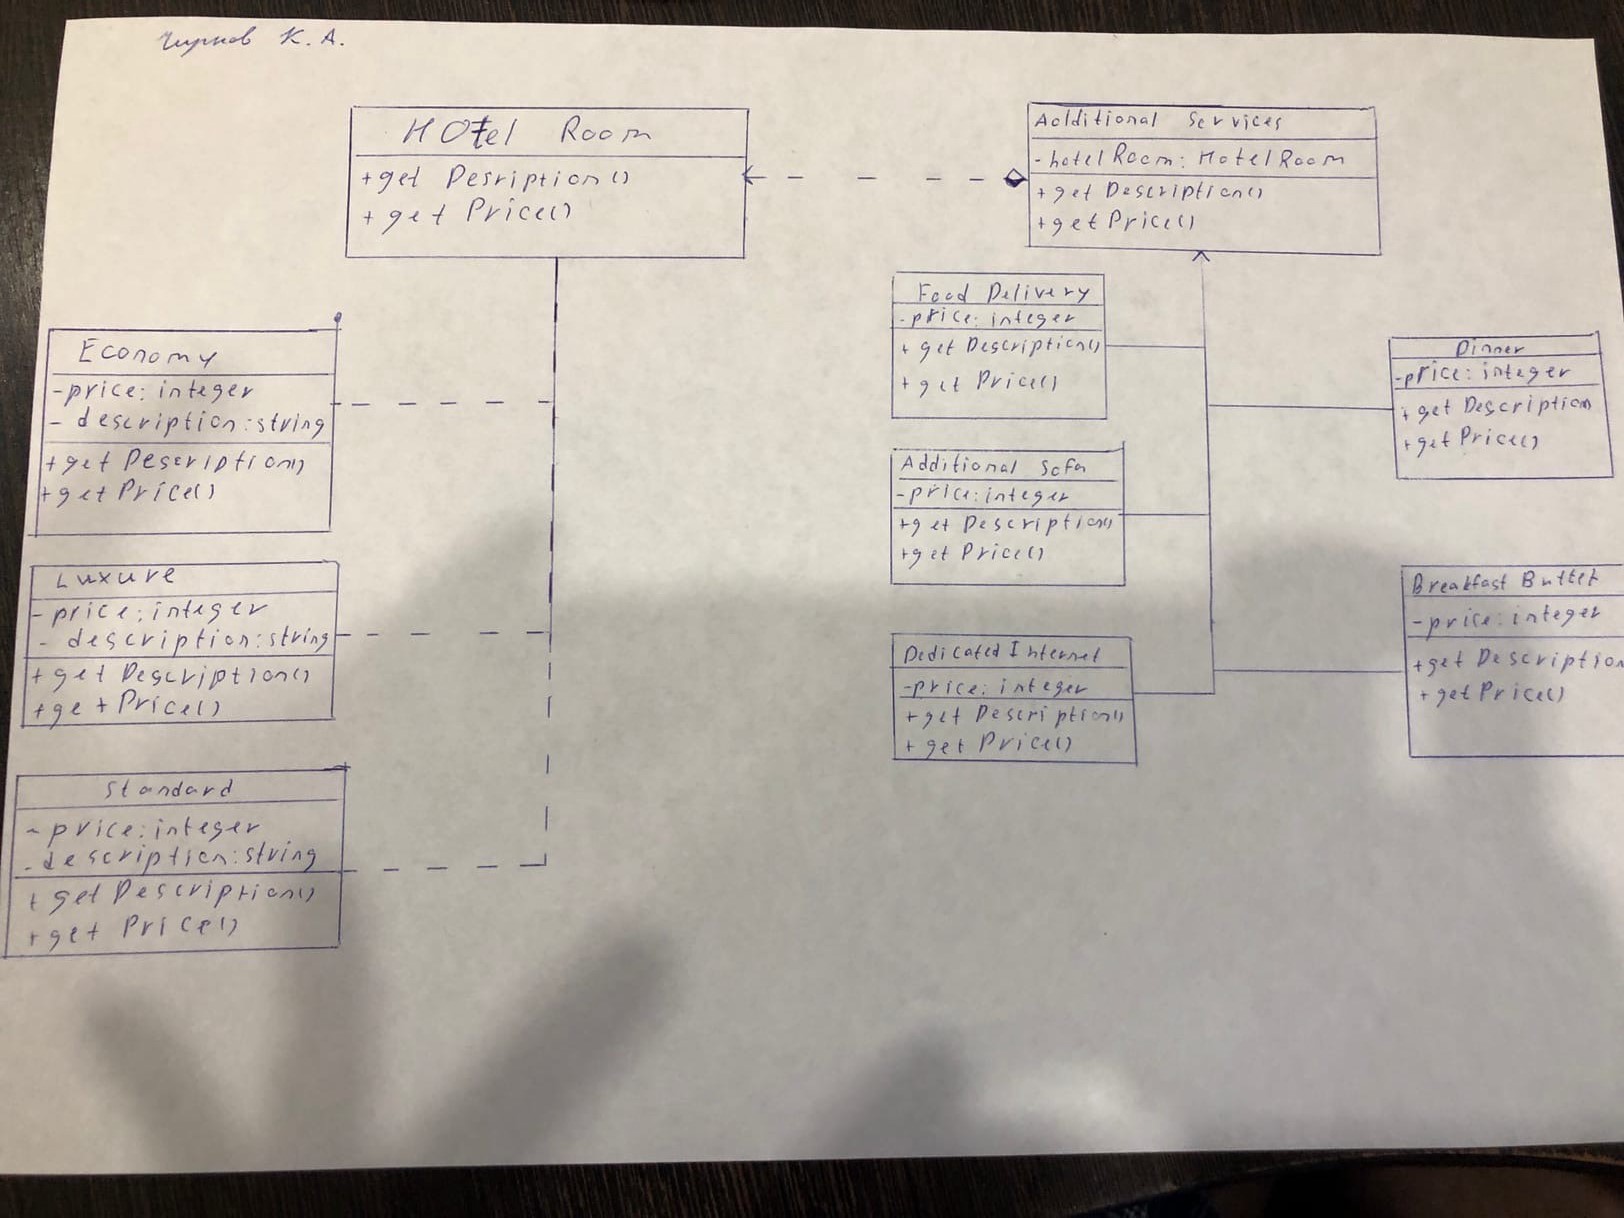 К. А.
HOtel Room
+get Desription()
+ get Price()
Additional Services
- hotelRoom: HotelRoom
+ get Description()
+get Price()
Economy
- price: integer
- description: string
+get Description()
+get Price()
Luxure
- price: integer
- description: string
+ get Description()
+get Price()
Standard
- price: integer
- description: string
+ get Description()
+ get Price()
Food Delivery
- price: integer
+ get Description()
+ get Price()
Additional Sofa
- price: integer
+get Description()
+get Price()
Dedicated Internet
- price: integer
+ get Description()
+ get Price()
Dinner
- price: integer
+ get Description
+ get Price()
Breakfast Buffet
- price: integer
+get Description
+ get Price()